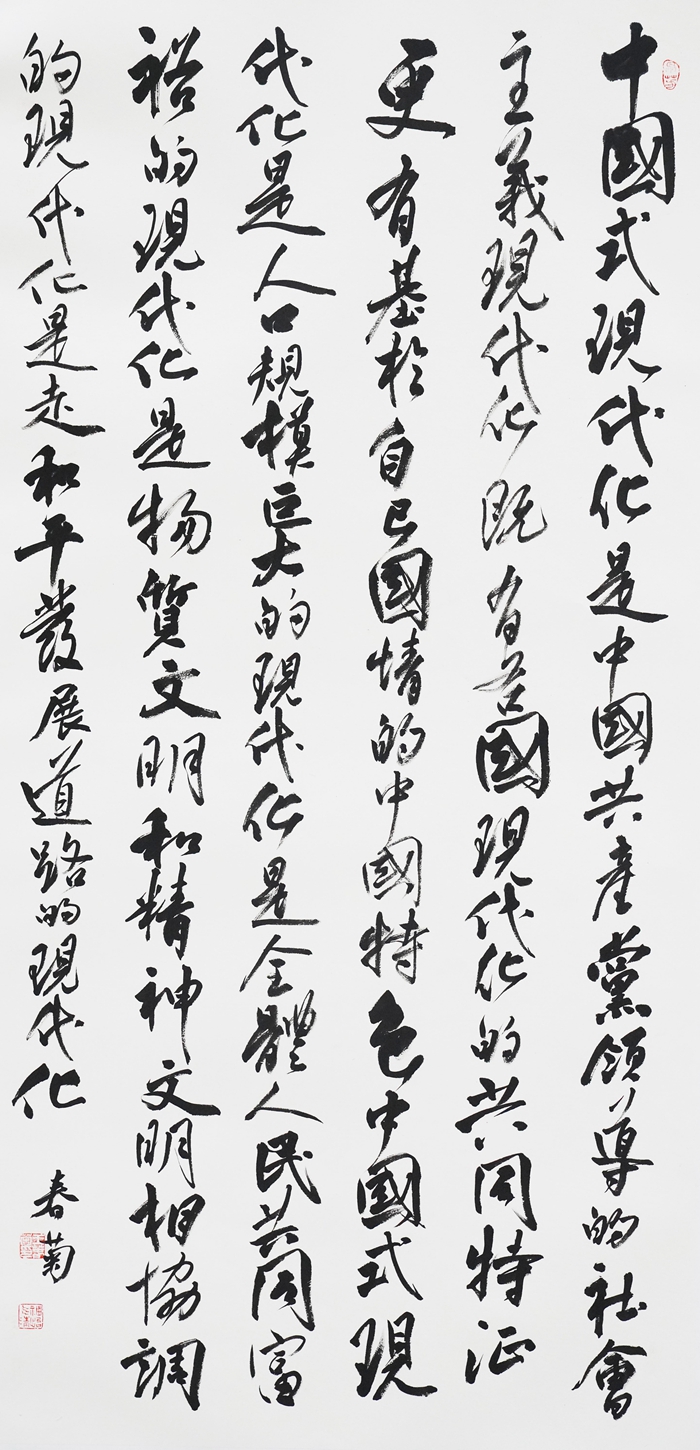 中國式現代化是中國共產黨領導的社會
主義現代化既有各國現代化的共同特征
更有基於自己國情的中國特色中國式現
代化是人口規模巨大的現代化是全體人民共同富
裕的現代化是物質文明和精神文明相協調
的現代化是走和平發展道路的現代化
春菊